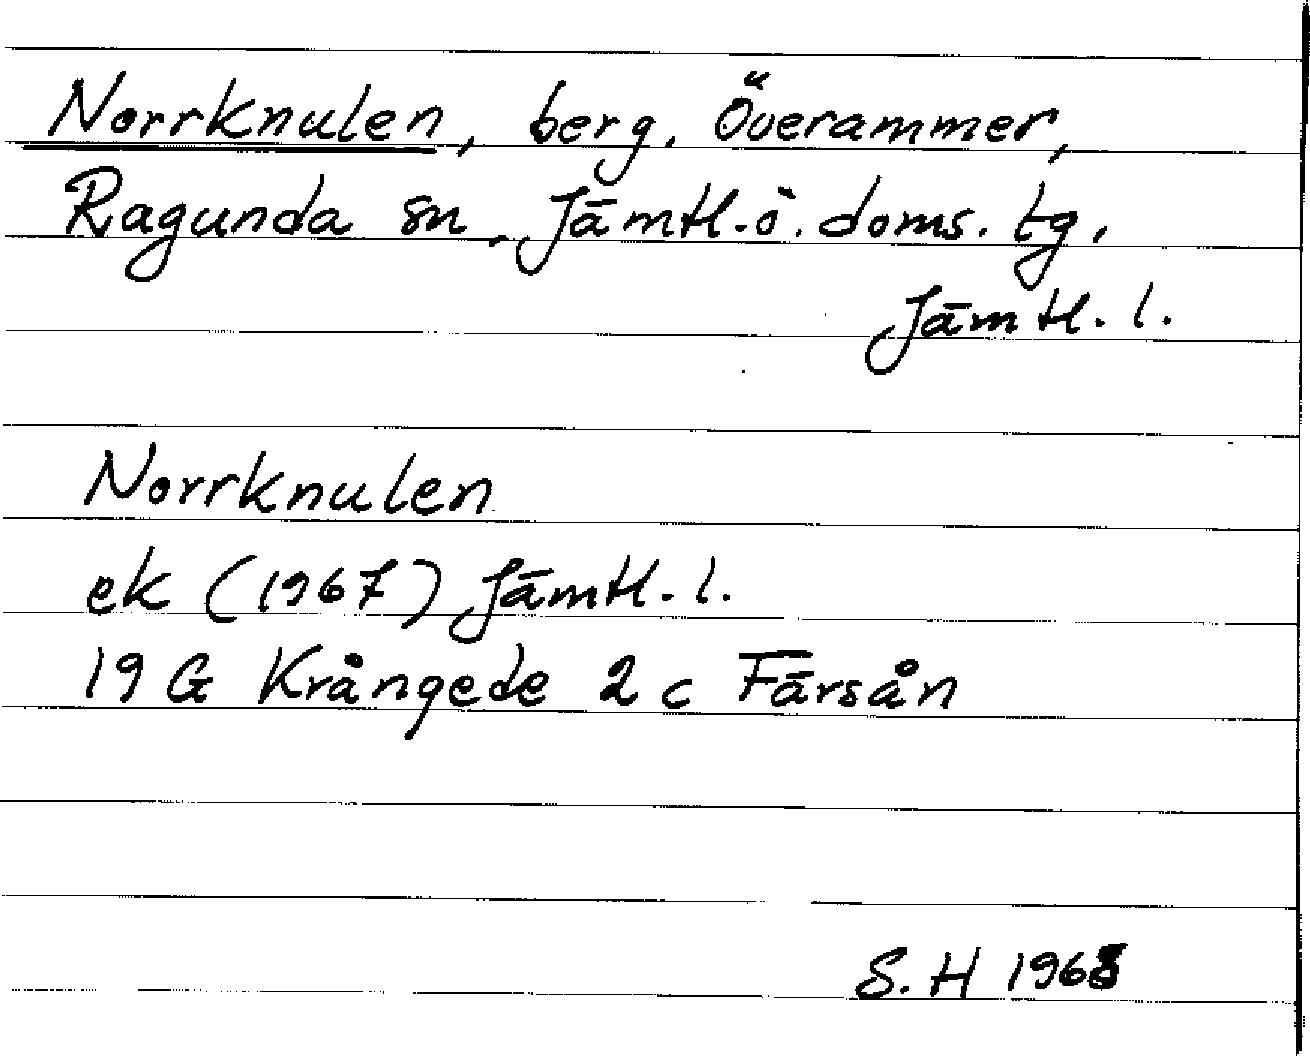 Norrknulen, berg, Överammer,
Ragunda sn, Jämtl. ö. doms. tg,
Jämtl. l.
Norrknulen
ek (1967) Jämtl. l.
19 G Krångede 2 c Färsån
S. H 1968